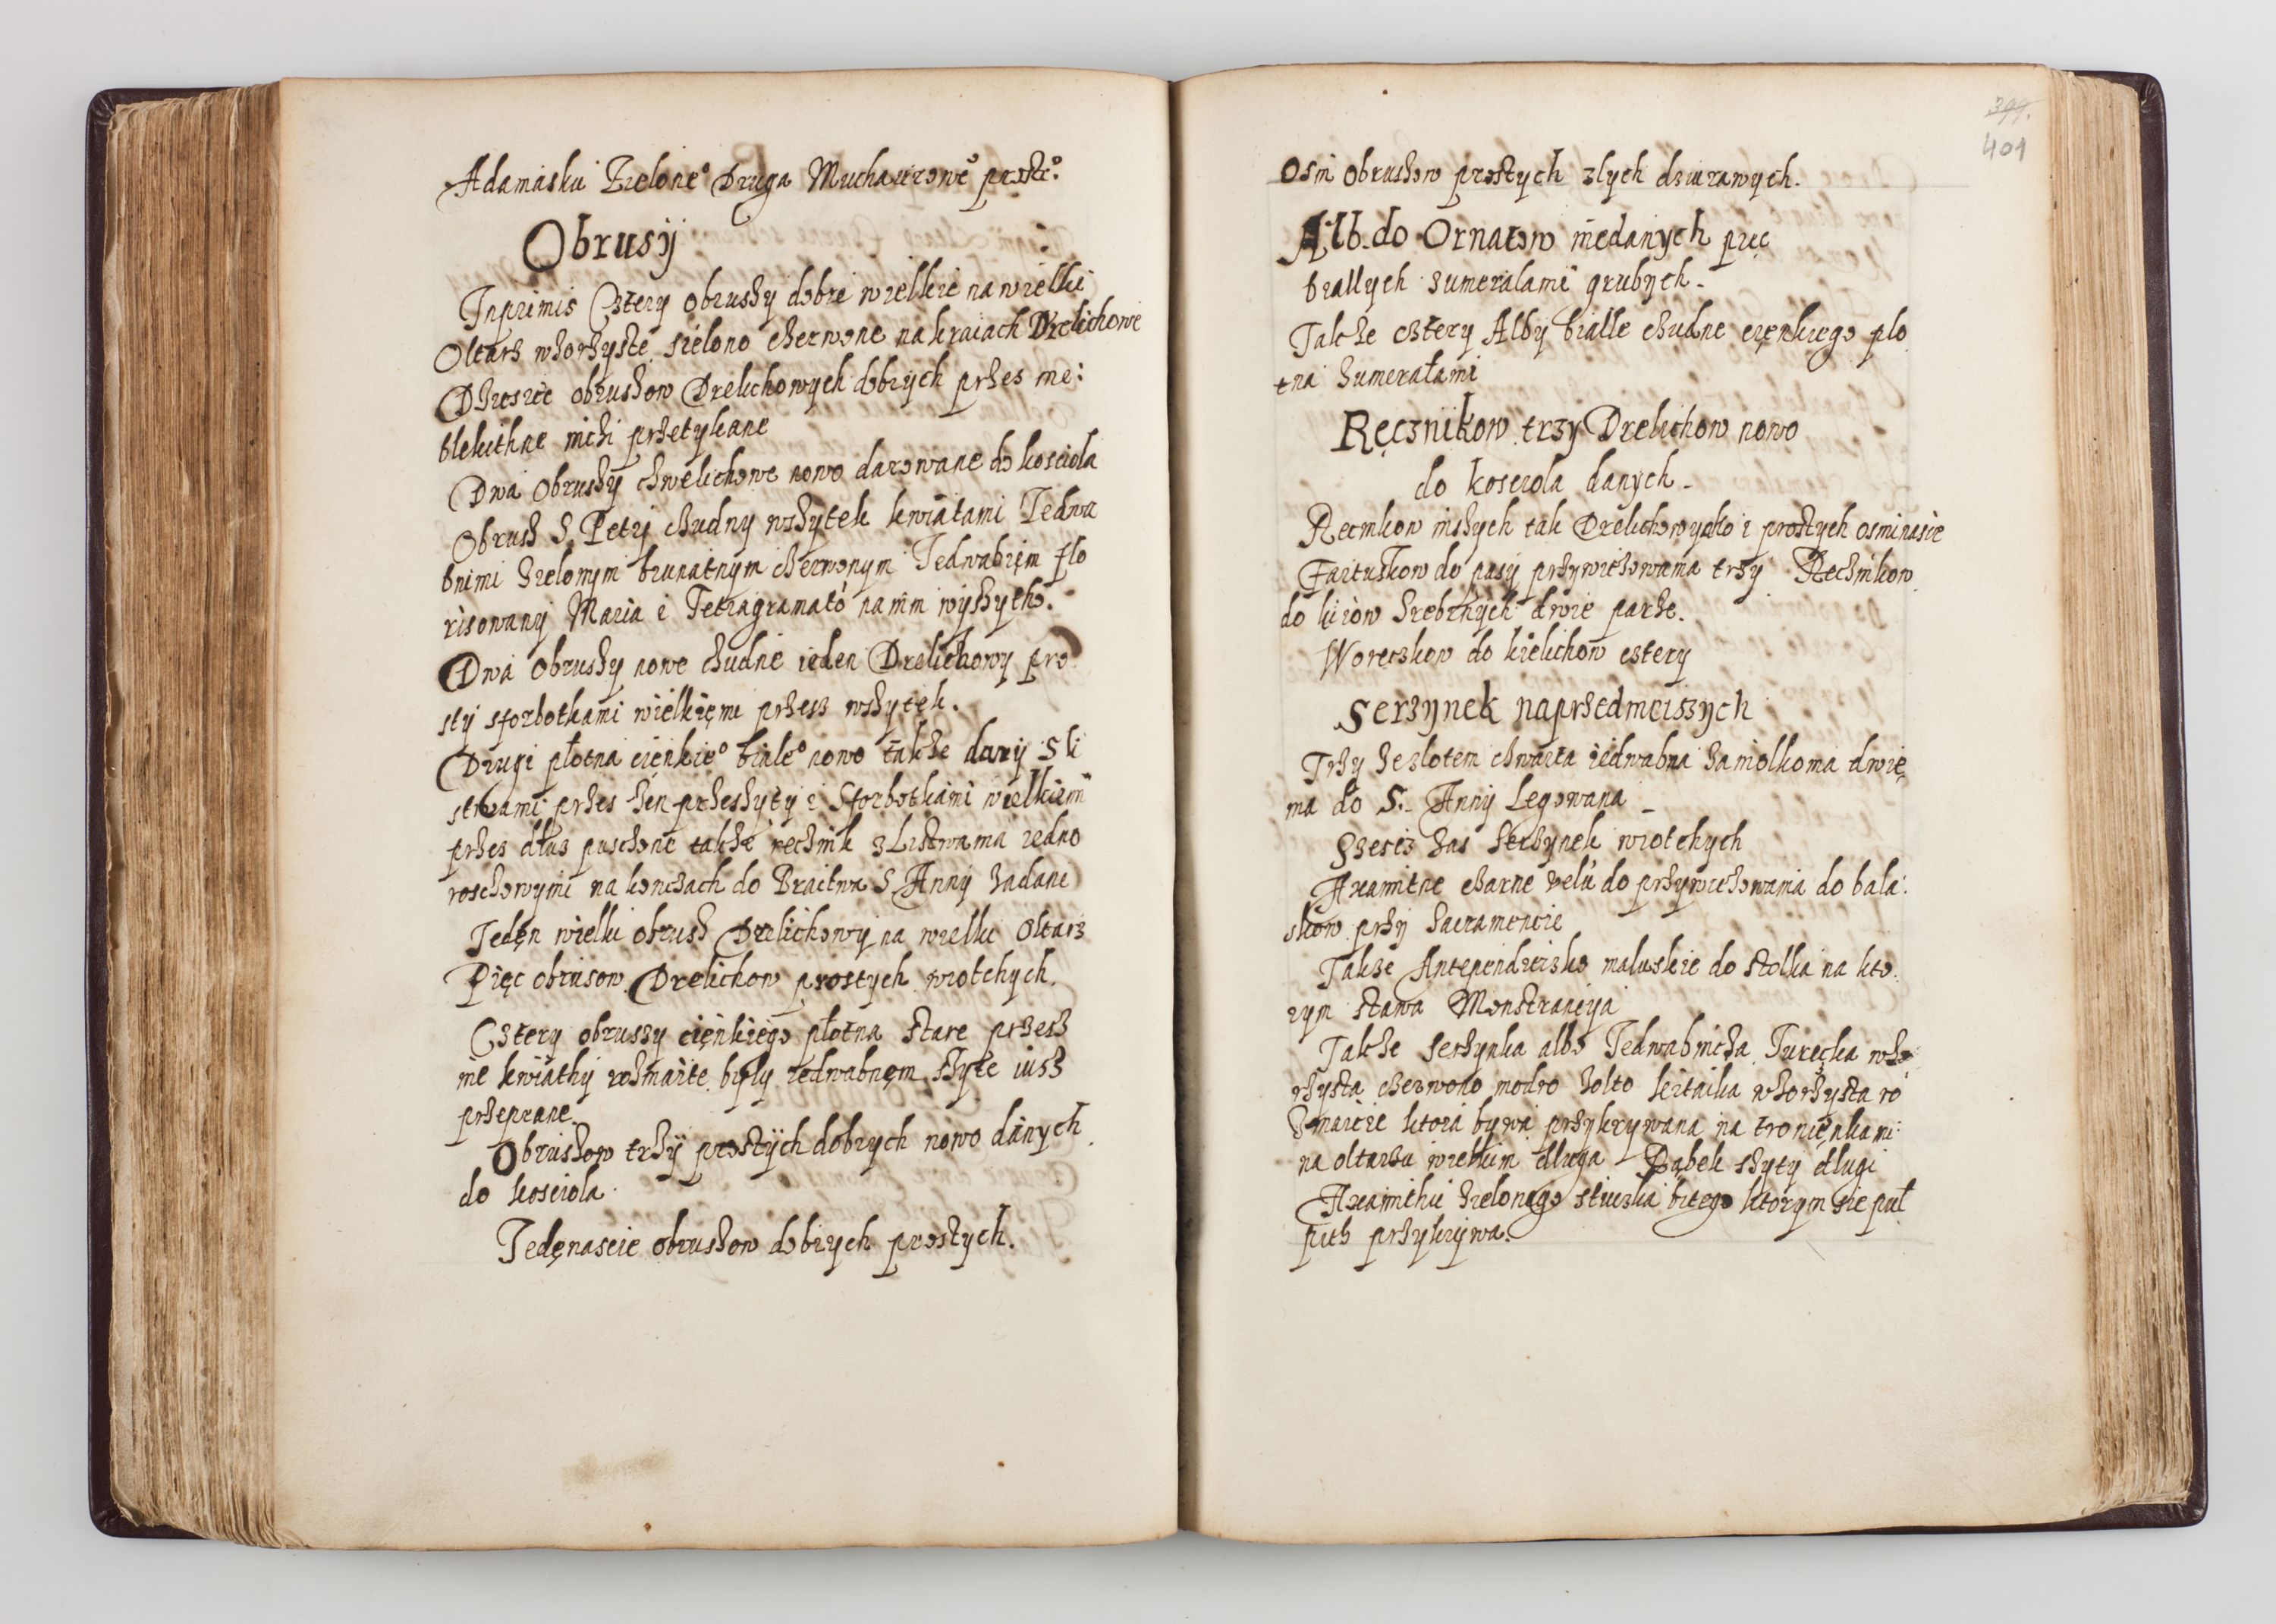 Adamasku Zielone° Druga Muchaierowe° proste°
Obrusÿ
Inprimis Cztery obrushy dobre wielkie na wielki
Oltarz whorzyste sielono cherwone na kraiach Drelichowe
Dziesiec obrushow Drelichowych dobrych przes me:
blekithne nichi przetykane
Dwa Obrushy chwelichowe nowo darowane do kosciola
Obrush S. Petri chudny wshytek kwiatami Jedwa
bnimi zielonym brunatnym cherwonym Jedwabięm flo
risowany Maria i Tetragramató na nim wyshytko.
Dwa Obrushy nowe chudne ieden Drelichowy pro
sty sforbotkami wielkięmi przesz wshytęk.
Drugi płotna cięnkie° biale° nowo takze dany S li
stwami przes hen przeshyty i Sforbotkami wielkiemi
przes dłuz puschone takze rechnik z Listwama iedno
roschowymi na konczach do Bractwa S. Anny zadane
Jedęn wielki obrush Drelichowy na wielki Oltarz
Pięc obrusow Drelichow prostych wiotchych.
Cztery obrussy cięnkiego płotna stare przesz
nie kwiathy rozmaite były iedwabnęm shyte iusz
przeprane.
Obrushow trzÿ prostÿch dobrych nowo danych
do kosciola.
Jedęnascie obrushow dobrych prostych.
399.
401
Osm Obrushow prostych zlych dziurawych.
Alb. do Ornatow niedanych pięc
biallych zumeralami grubych.
Takze cztery Alby bialle chudne cięnkiego plo
tna humerałami
Ręcznikow trzy Drelichow nowo
do kosciola danych.
Recznikow inshych tak Drelichowych i prostych osminascie
Fartushkow do pasy przywiezowania trzy Rechnikow
do kirow srebrnych dwie parze.
Woreczkow do kielichow cztery
Serzynek naprzedmeiszych
Trzy ze zlotem chwarta iedwabna zamolkoma dwie
ma do S. Anny Legowana
Szescz zas serzynek wiotchych
Axamitne charne velu do przywiezowania do bala:
skow przy Sacramencie
Takze Antependieizko maluskie do stolka na kto.
rym stawa Monstrancÿa
Takze serzynka albo Jedwabnicha Turęcka who
rzysta cherwono modro zolto kitaika whorzysta ro
zmaicie ktora bywa przykrywana na tronięnkami
na oltarzu wielkim dluga Dąbek shyty dlugi
Axamithu zielonego stuczka bitego ktorym sie pul
pith przykrywa.